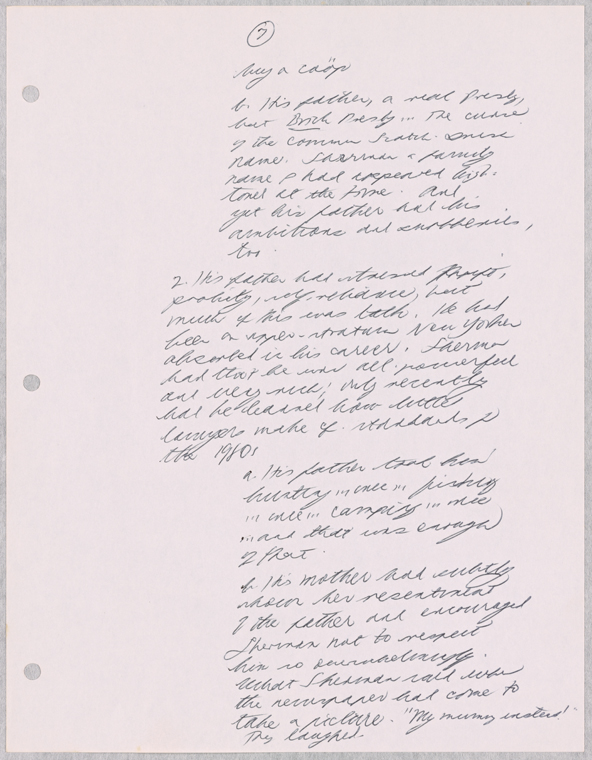 7
buy a coöp
b. His father, a real Presby,
but Birch Presby... The curse
of the common Scotch
name. Sherman a family
name & had appeared high-
toned at the time. And
yet his father had his
ambitions and snobberies,
too.
2. His father had stressed thrift,
probity, self-reliance, but
much of this was talk. He had
been an upper-stratum New Yorker
absorbed in his career. Sherman
had thot he was all-powerful
and very rich; only recently
had he learned how little
lawyers make by standards of
the 1980s
a. His father took him
hunting ... once ... fishing
... once ... camping ... once
... and that was enough
of that.
b. His mother had subtly
shown her resentment
of the father and encouraged
Sherman not to respect
him so overwhelmingly.
What Sherman said when
the newspaper had come to
take a picture. "My mummy instead!"
They laughed.